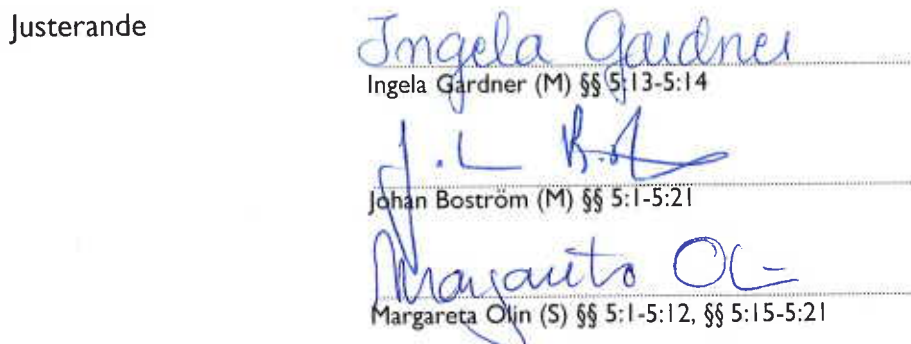 Justerande
Ingela Gardner
Ingela Gardner (M) §§ 5:13-5:14
Johan Boström (M) §§ 5:1-5:21
Margareta Olin
Margareta Olin (S) §§ 5:1-5:12, §§ 5:15-5:21